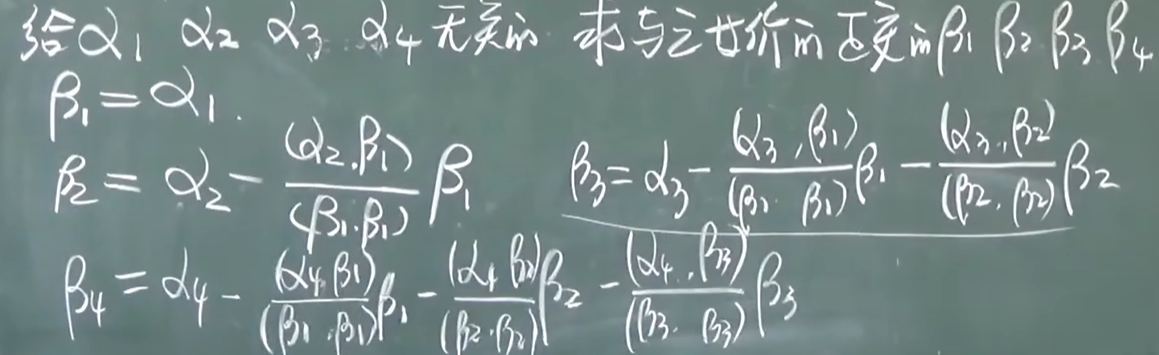 给α₁ α₂ α₃ α₄ 无关的 求与之等价的正交的β₁ β₂ β₃ β₄
β₁=α₁.
β₂ = α₂ - (α₂.β₁)/(β₁.β₁) β₁
β₃ = α₃ - (α₃,β₁)/(β₁ β₁) β₁ - (α₃,β₂)/(β₂.β₂) β₂
β₄ = α₄ - (α₄,β₁)/(β₁.β₁) β₁ - (α₄ β₂)/(β₂.β₂) β₂ - (α₄.,β₃)/(β₃. β₃) β₃